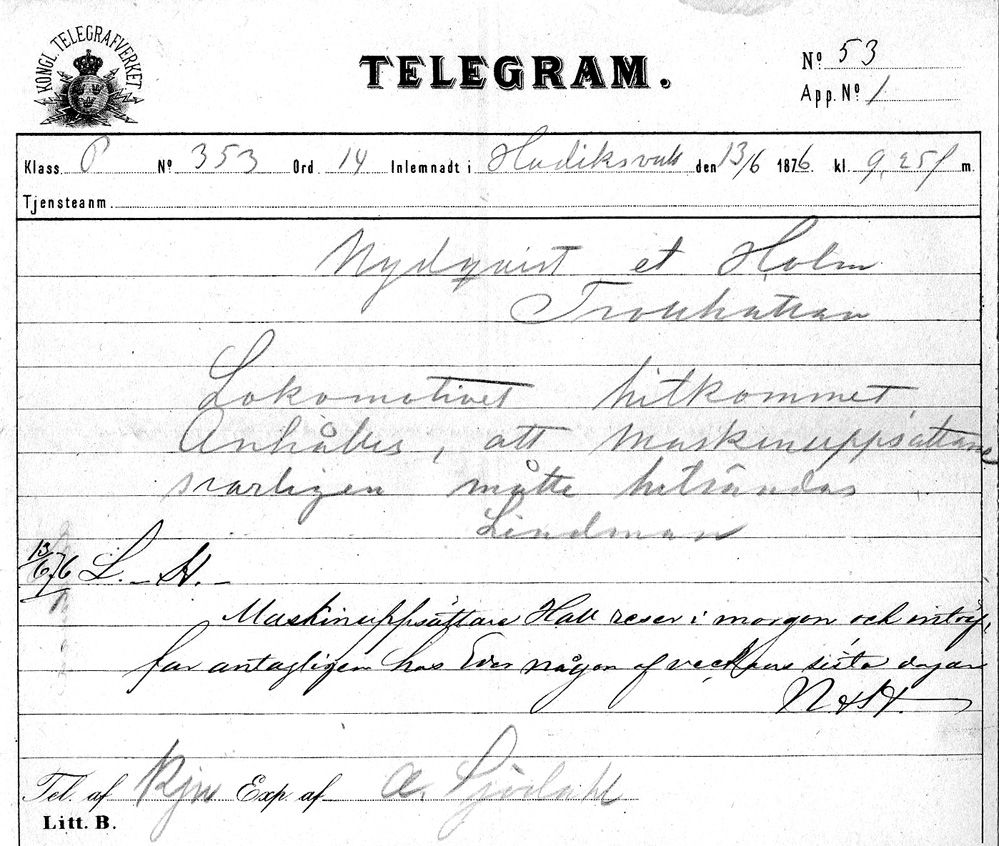 KONGL. TELEGRAFVERKET
TELEGRAM.
No 53
App. No 1
Klass P No 353 Ord 14 Inlemnadt i Hudiksvall den 13/6 1876 kl. 9,25 f m.
Tjensteanm.
Nydqvist et Holm
Trollhättan
Lokomotivet hitkommet,
Anhålles, att maskinuppsättare
snarligen måtte hitsändas
Lindman
13/6 76 L. - H. -
Maskinuppsättare Hall reser i morgon och inträf-
far antagligen hos Eder någon af veckans sista dagar
N & H.
Tel. af Exp. af Sjödahl
Litt. B.